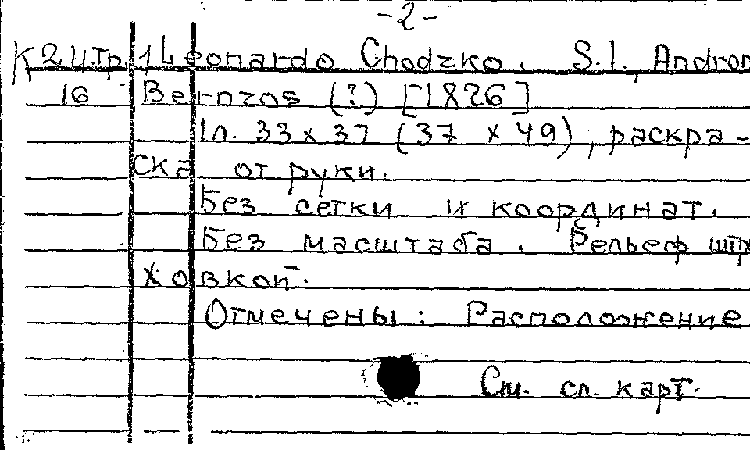 -2-
К 2 Ц.Тр. 1 Leonardo Chodzko. S.l., Androm
16 Bernzos (?) [1826]
1л. 33 х 37 (37 х 49), раскра-
ска от руки.
Без сетки и координат.
Без масштаба. Рельеф штр
ховкой.
Отмечены: Расположение
См. сл. карт.